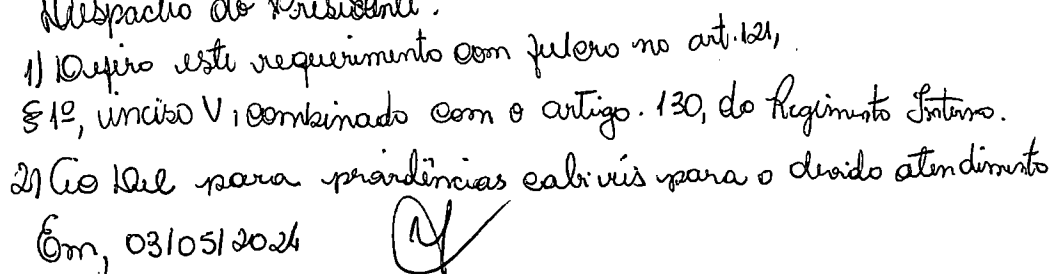 Despacho do Presidente.
1) Defiro este requerimento com fulcro no art. 121,
§ 1º, inciso V, combinado com o artigo. 130, do Regimento Interno.
2) Ao Del para providências cabíveis para o devido atendimento
Em, 03/05/2024